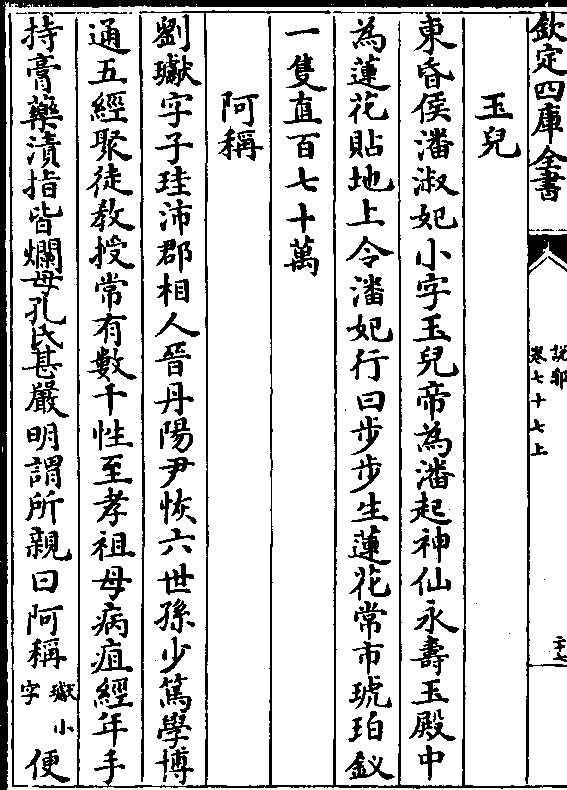 欽定四庫全書
說郛
卷七十七上
二十七
玉兒
東昏侯潘淑妃小字玉兒帝為潘起神仙永壽玉殿中
為蓮花貼地上令潘妃行曰步步生蓮花常市琥珀釵
一隻直百七十萬
阿稱
劉瓛字子珪沛郡相人晉丹陽尹恢六世孫少篤學博
通五經聚徒教授常有數千性至孝祖母病疽經年手
持膏藥漬指皆爛母孔氏甚嚴明謂所親曰阿稱瓛小字便